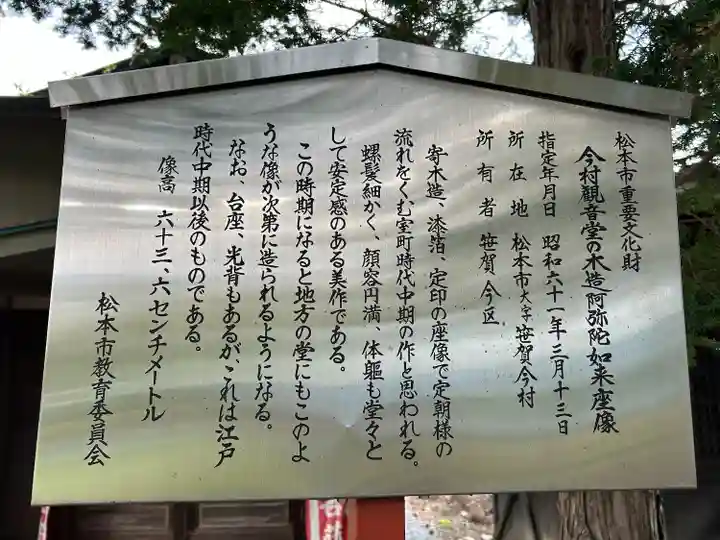 松本市重要文化財
今村観音堂の木造阿弥陀如来座像
指定年月日 昭和六十一年三月十三日
所在地 松本市大字笹賀今村
所有者 笹賀今区
寄木造、漆箔、定印の座像で定朝様の
流れをくむ室町時代中期の作と思われる。
螺髪細かく、顔容円満、体軀も堂々と
して安定感のある美作である。
この時期になると地方の堂にもこのよ
うな像が次第に造られるようになる。
なお、台座、光背もあるが、これは江戸
時代中期以後のものである。
像高 六十三、六センチメートル
松本市教育委員会